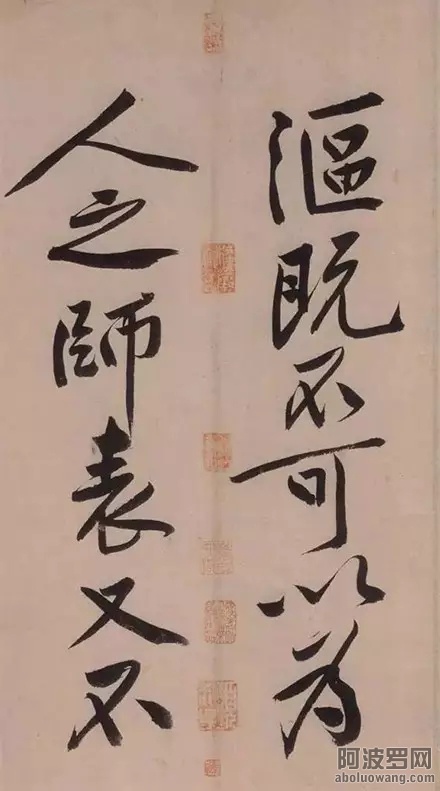 漚既不可以為
人之師表又不
阿波罗网
aboluowang.com